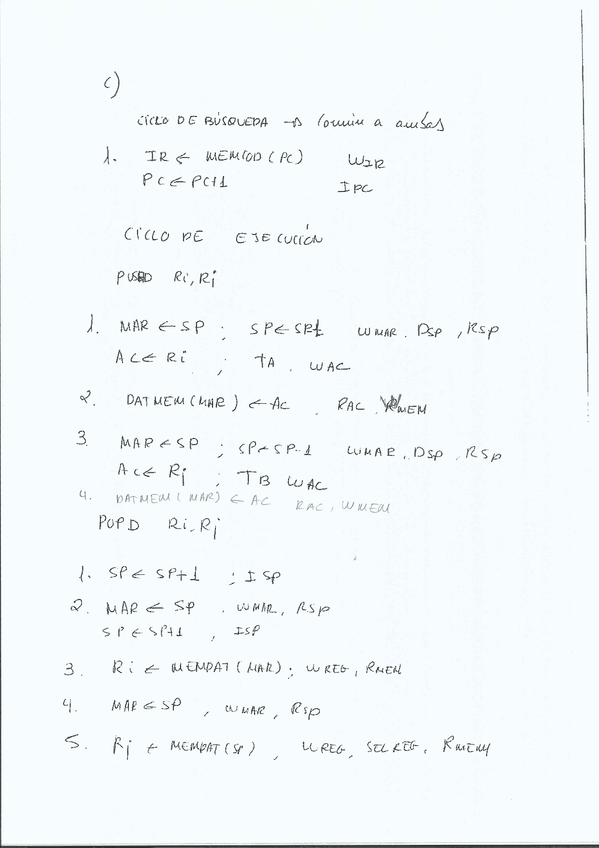 c)
CICLO DE BÚSQUEDA → Común a ambas
1. IR ← MEMCOD(PC) WIR
PC ← PC+1 IPC
CICLO DE EJECUCIÓN
PUSHD Ri, Rj
1. MAR ← SP ; SP ← SP-1 WMAR, DSP, RSP
AC ← Ri ; TA, WAC
2. DATMEM(MAR) ← AC, RAC, WMEM
3 MAR ← SP ; SP ← SP-1 WMAR, DSP, RSP
AC ← Rj ; TB WAC
4. DATMEM(MAR) ← AC RAC, WMEM
POPD Ri, Rj
1. SP ← SP+1 ; ISP
2. MAR ← SP, WMAR, RSP
SP ← SP+1, ISP
3. Ri ← MEMDAT(MAR); WREG, RMEM
4. MAR ← SP, WMAR, RSP
5. Rj ← MEMDAT(SP), WREG, SELREG, RMEM